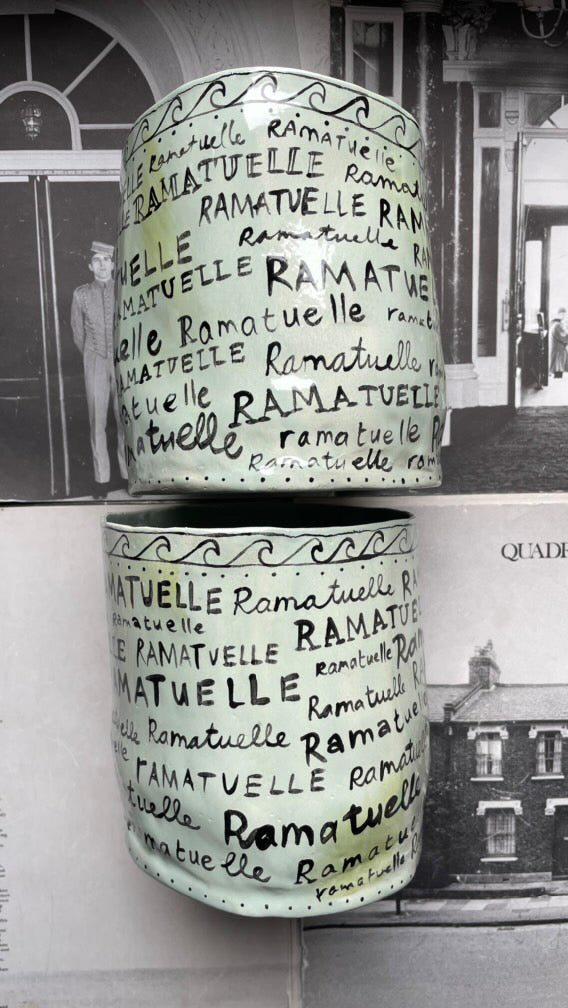 Ramatuelle RAMATUELLE
RAMATUELLE Ramat
RAMATUELLE RAM
UELLE Ramatuelle RA
MATUELLE RAMATUE
elle Ramatuelle ramat
AMATUELLE Ramatuelle r
atuelle RAMATUELLE
matuelle ramatuelle R
Ramatuelle ram
QUADR
MATUELLE Ramatuelle RA
Ramatuelle RAMATUEL
LE RAMATVELLE ramatuelle Ram
MATUELLE Ramatuelle RA
uelle Ramatuelle Ramatuelle
elle rAMATUELLE Ramatu
tuelle Ramatuelle
matuelle Ramatu
ramatuelle